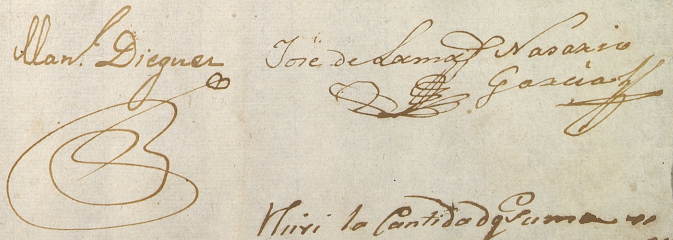 Man.l Dieguez
José de Lama
Nasario
Garcia
la Cantidad q Suma